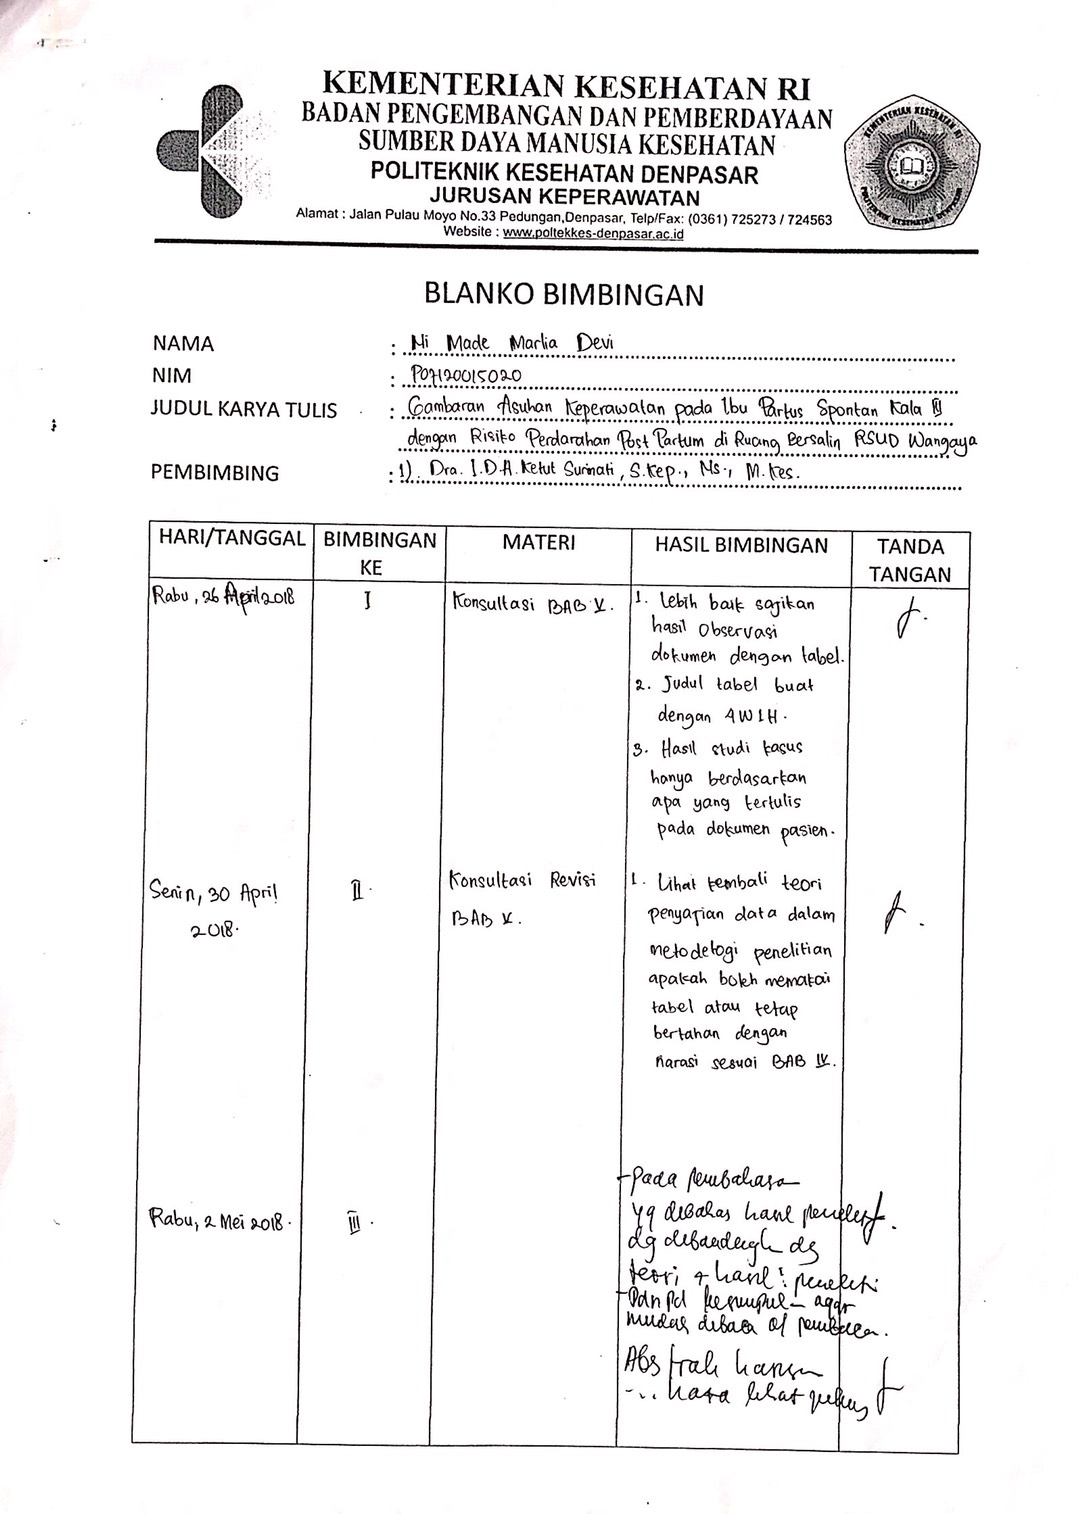 KEMENTERIAN KESEHATAN RI
BADAN PENGEMBANGAN DAN PEMBERDAYAAN
SUMBER DAYA MANUSIA KESEHATAN
POLITEKNIK KESEHATAN DENPASAR
JURUSAN KEPERAWATAN
Alamat : Jalan Pulau Moyo No.33 Pedungan,Denpasar, Telp/Fax: (0361) 725273 / 724563
Website : www.poltekkes-denpasar.ac.id
KEMENTERIAN KESEHATAN RI
POLITEKNIK KESEHATAN DENPASAR
BLANKO BIMBINGAN
NAMA : Ni Made Marlia Devi
NIM : P07120015020
JUDUL KARYA TULIS : Gambaran Asuhan Keperawatan pada Ibu Partus Spontan Kala
dengan Risiko Perdarahan Post Partum di Ruang Bersalin RSUD Wangaya
PEMBIMBING : 1). Dra. I.D.A. Ketut Surinati, S.Kep., Ns., M.Kes.
HARI/TANGGAL BIMBINGAN KE MATERI HASIL BIMBINGAN TANDA TANGAN
Rabu, 26 April 2018 I Konsultasi BAB V. 1. Lebih baik sajikan
hasil observasi
dokumen dengan tabel.
2. Judul tabel buat
dengan 4W1H.
3. Hasil studi kasus
hanya berdasarkan
apa yang tertulis
pada dokumen pasien.
Senin, 30 April
2018.
II.
Konsultasi Revisi
BAB V.
1. Lihat kembali teori
penyajian data dalam
metodelogi penelitian
apakah boleh memakai
tabel atau tetap
bertahan dengan
narasi sesuai BAB IV.
Rabu, 2 Mei 2018. III.
- Pada pembahasa
yg dibahas hasil
dg dg
teori + hasil
agar
mudah dibaca
Abstrak
lihat